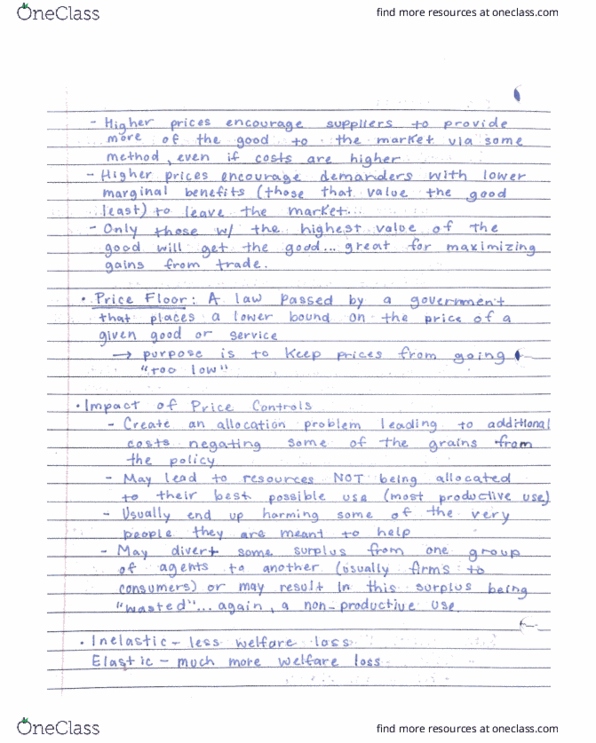 OneClass
find more resources at oneclass.com
- Higher prices encourage suppliers to provide
more of the good to the market via some
method, even if costs are higher
- Higher prices encourage demanders with lower
marginal benefits (those that value the good
least) to leave the market...
- Only those w/ the highest value of the
good will get the good... great for maximizing
gains from trade.
• Price Floor: A law passed by a government
that places a lower bound on the price of a
given good or service
→ purpose is to keep prices from going
"too low"
• Impact of Price Controls
- Create an allocation problem leading to additional
costs negating some of the grains from
the policy
- May lead to resources NOT being allocated
to their best possible use (most productive use)
- Usually end up harming some of the very
people they are meant to help
- May divert some surplus from one group
of agents to another (usually firms to
consumers) or may result in this surplus being
"wasted"... again, a non-productive use
• Inelastic - less welfare loss
Elastic - much more welfare loss
OneClass
find more resources at oneclass.com